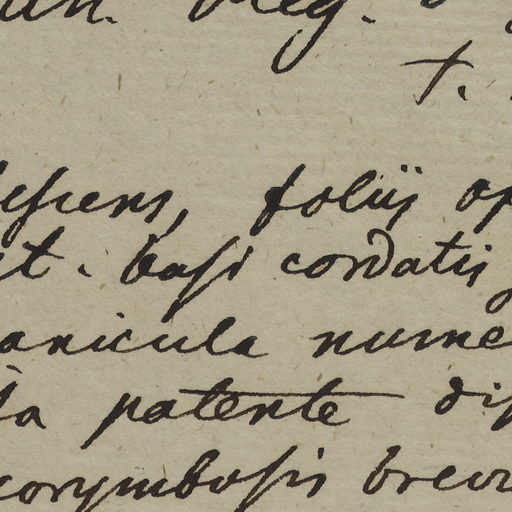 Reg.
t.
escens, foliis op
t. basi cordatis
anicula nume
ta patente dis
corymbosis brevi